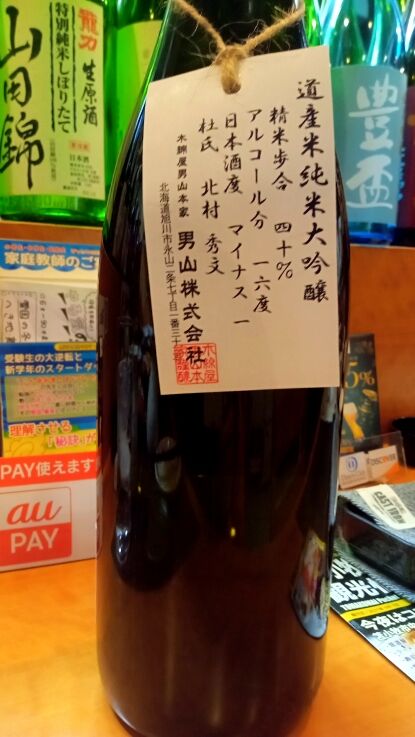 道産米純米大吟醸
精米歩合 四十%
アルコール分 一六度
日本酒度 マイナス一
杜氏 北村 秀文
木綿屋男山本家 男山株式会社
北海道旭川市永山二条七丁目一番三十
龍力
生原酒
特別純米しぼりたて
山田錦
日本酒
豊盃
家庭教師の
受験生の大逆転と
新学年のスタートダ
理解させる
「秘訣」が
PAY使えます
au
PAY
5%
DISCOVER
観光
今夜はこ